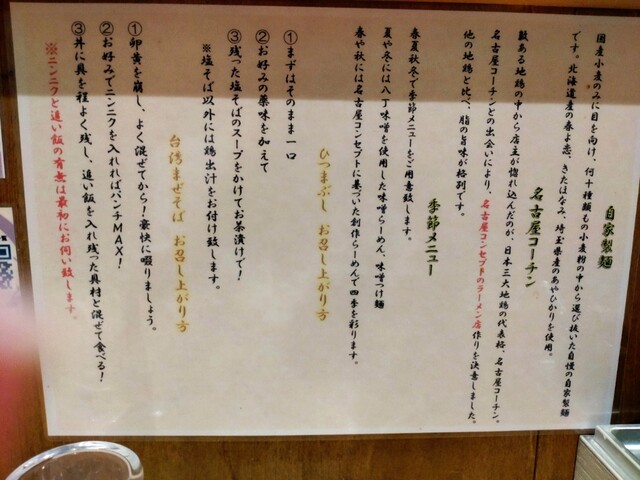 自家製麺
国産小麦のみに目を向け、何十種類もの小麦粉の中から選び抜いた自慢の自家製麺
です。北海道産の春よ恋、きたほなみ、埼玉県産のあやひかりを使用。
名古屋コーチン
数ある地鶏の中から店主が惚れ込んだのが、日本三大地鶏の代表格、名古屋コーチン。
名古屋コーチンとの出会いにより、名古屋コンセプトのラーメン店作りを決意しました。
他の地鶏と比べ、脂の旨味が格別です。
季節メニュー
春夏秋冬で季節メニューをご用意致します。
夏や冬には八丁味噌を使用した味噌らーめん、味噌つけ麺
春や秋には名古屋コンセプトに基づいた創作らーめんで四季を彩ります。
ひつまぶし お召し上がり方
①まずはそのまま一口
②お好みの薬味を加えて
③残った塩そばのスープをかけてお茶漬けで!
※塩そば以外には鶏出汁をお付け致します。
台湾まぜそば お召し上がり方
①卵黄を崩し、よく混ぜてから!豪快に啜りましょう。
②お好みでニンニクを入れればパンチMAX!
③丼に具を程よく残し、追い飯を入れ残った具材と混ぜて食べる!
※ニンニクと追い飯の有無は最初にお伺い致します。